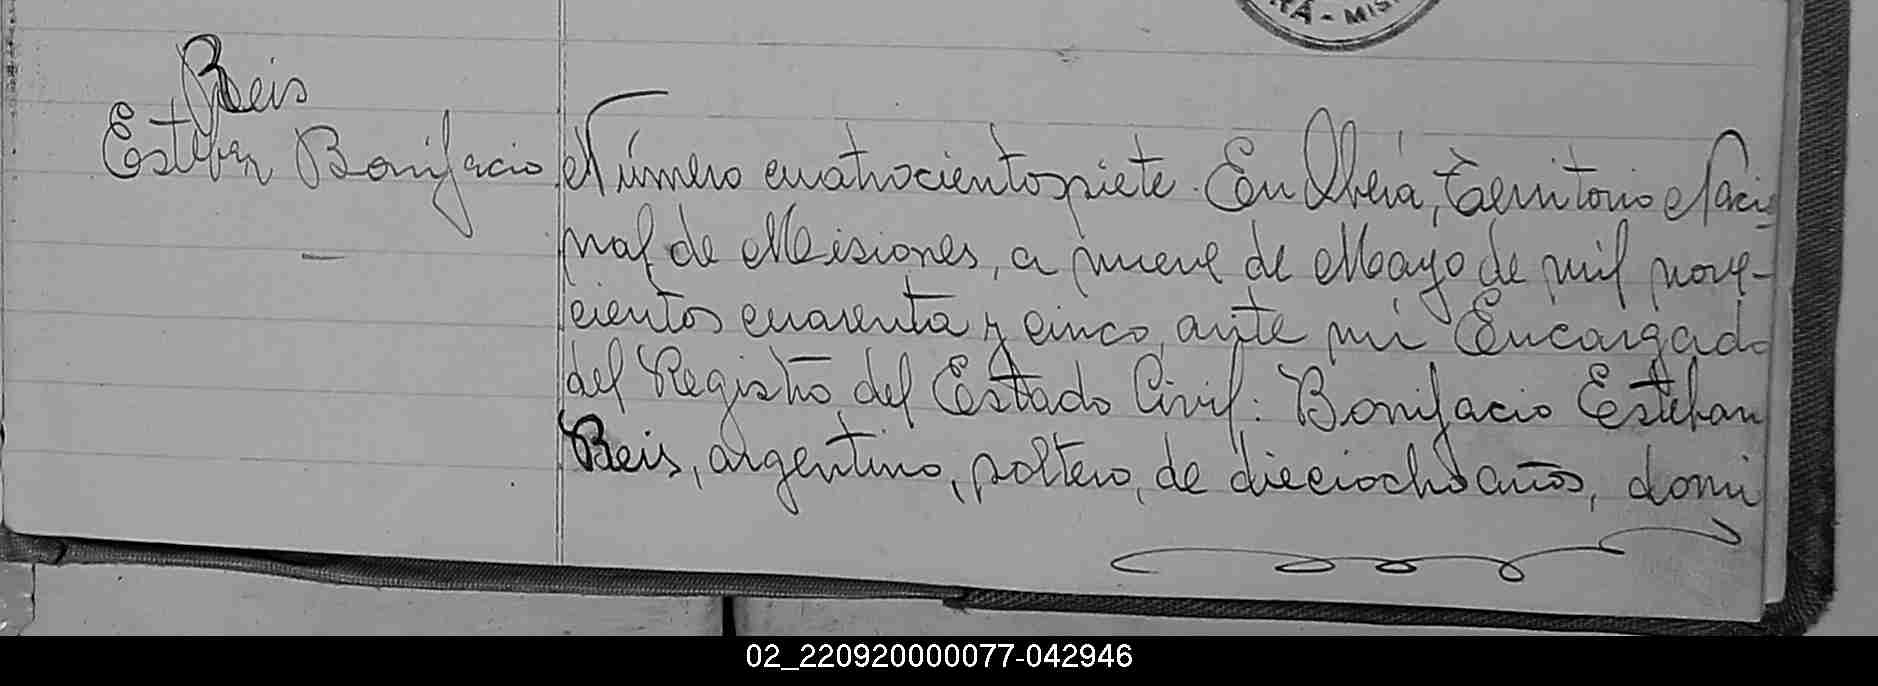 RÁ - MIS
Reis
Esteban Bonifacio
Número cuatrocientos siete. En Oberá, Territorio Nacio
nal de Misiones, a nueve de Mayo de mil nove-
cientos cuarenta y cinco, ante mi Encargado
del Registro del Estado Civil: Bonifacio Esteban
Reis, argentino, soltero, de dieciocho años, domi
02_220920000077-042946